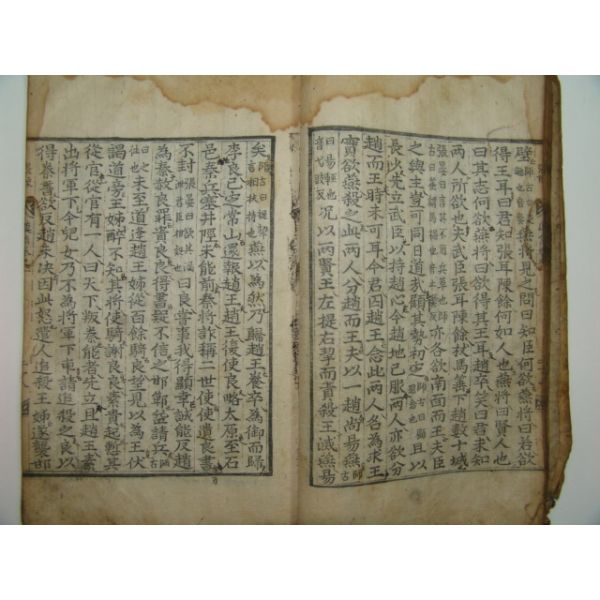 壁燕將見之問曰知臣何欲燕將曰若欲
得王耳曰君知張耳陳餘何如人也燕將曰賢人也
曰其志何欲燕將曰欲得其王耳趙卒笑曰君未知
兩人所欲也夫武臣張耳陳餘杖馬箠下趙數十城
張晏曰言其不用兵革也師古曰箠謂馬檛也音止蘂反亦各欲南面而王夫臣
之與主豈可同日道哉顧其勢初定師古曰顧思念也且以
長少先立武臣以持趙心今趙地已服兩人亦欲分
趙而王時未可耳今君囚趙王念此兩人名為求王
實欲燕殺之此兩人分趙而王夫以一趙尚易燕師古
曰易輕也音弋豉反況以兩賢王左提右挈而責殺王滅燕易
矣師古曰提挈言相扶持也燕以為然乃歸趙王養卒為御而歸
李良已定常山還報趙王趙王復使良略太原至石
邑秦兵塞井陘未能前秦將詐稱二世使使遺良書
不封張晏曰欲其漏泄君臣相疑也曰良嘗事我得顯幸誠能反趙
為秦赦良罪貴良良得書疑不信之邯鄲益請兵古
曰之往也未至道逢趙王姊從百餘騎良望見以為王伏
謁道旁王姊醉不知其將使騎謝良良素貴起慙其
從官從官有一人曰天下叛秦能者先立且趙王素
出將軍下今兒女乃不為將軍下車請追殺之良以
得秦書欲反趙未決因此怒遣人追殺王姊遂襲邯